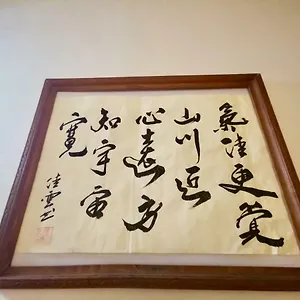 氣清更覺
山川近
心遠方
知宇宙
寬
佳雲書